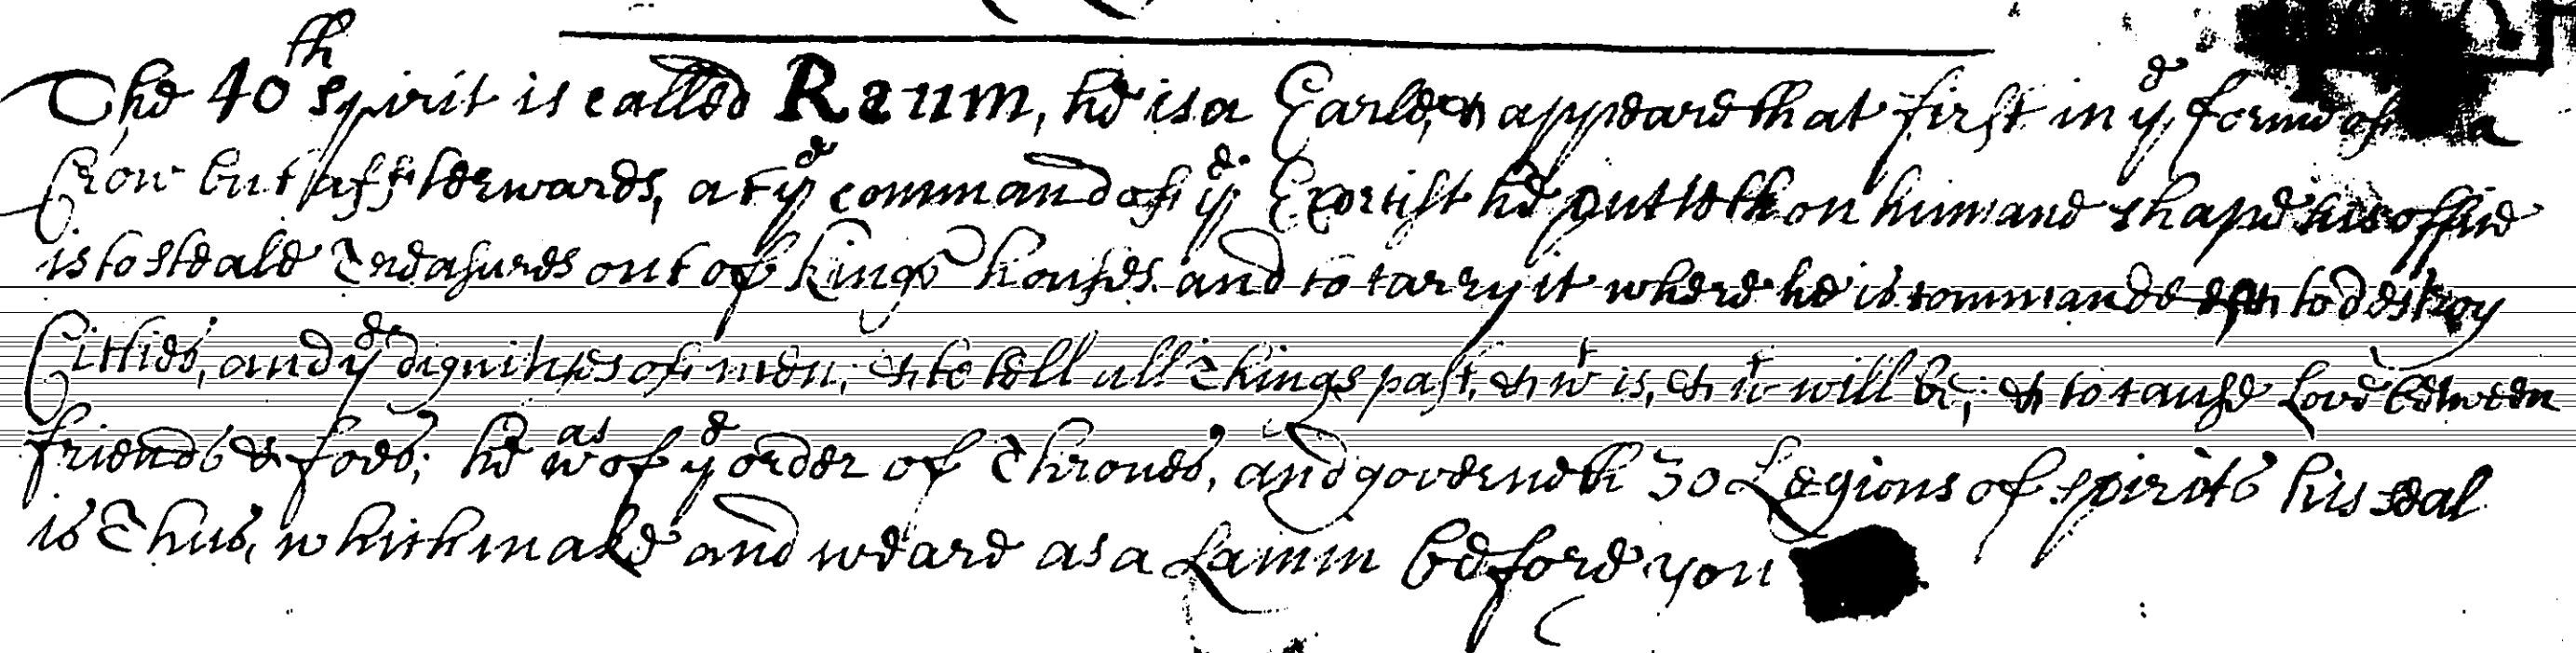 The 40th Spirit is called Raum, he is a Earle, & appeareth at first in ye forme of a
Crow but affterwards, at ye command of ye Exorcist he putteth on humane shape his office
is to steale Treasures out of kings houses. and to carry it where he is commanded & to destroy
Citties, and ye dignities of men; & to tell all Things past, & wt is, & wt will be; & to cause Love between
friends & foes; he was of ye order of Thrones, and governeth 30 Legions of spirits his seal
is Thus, which make and weare as a Lamin before you